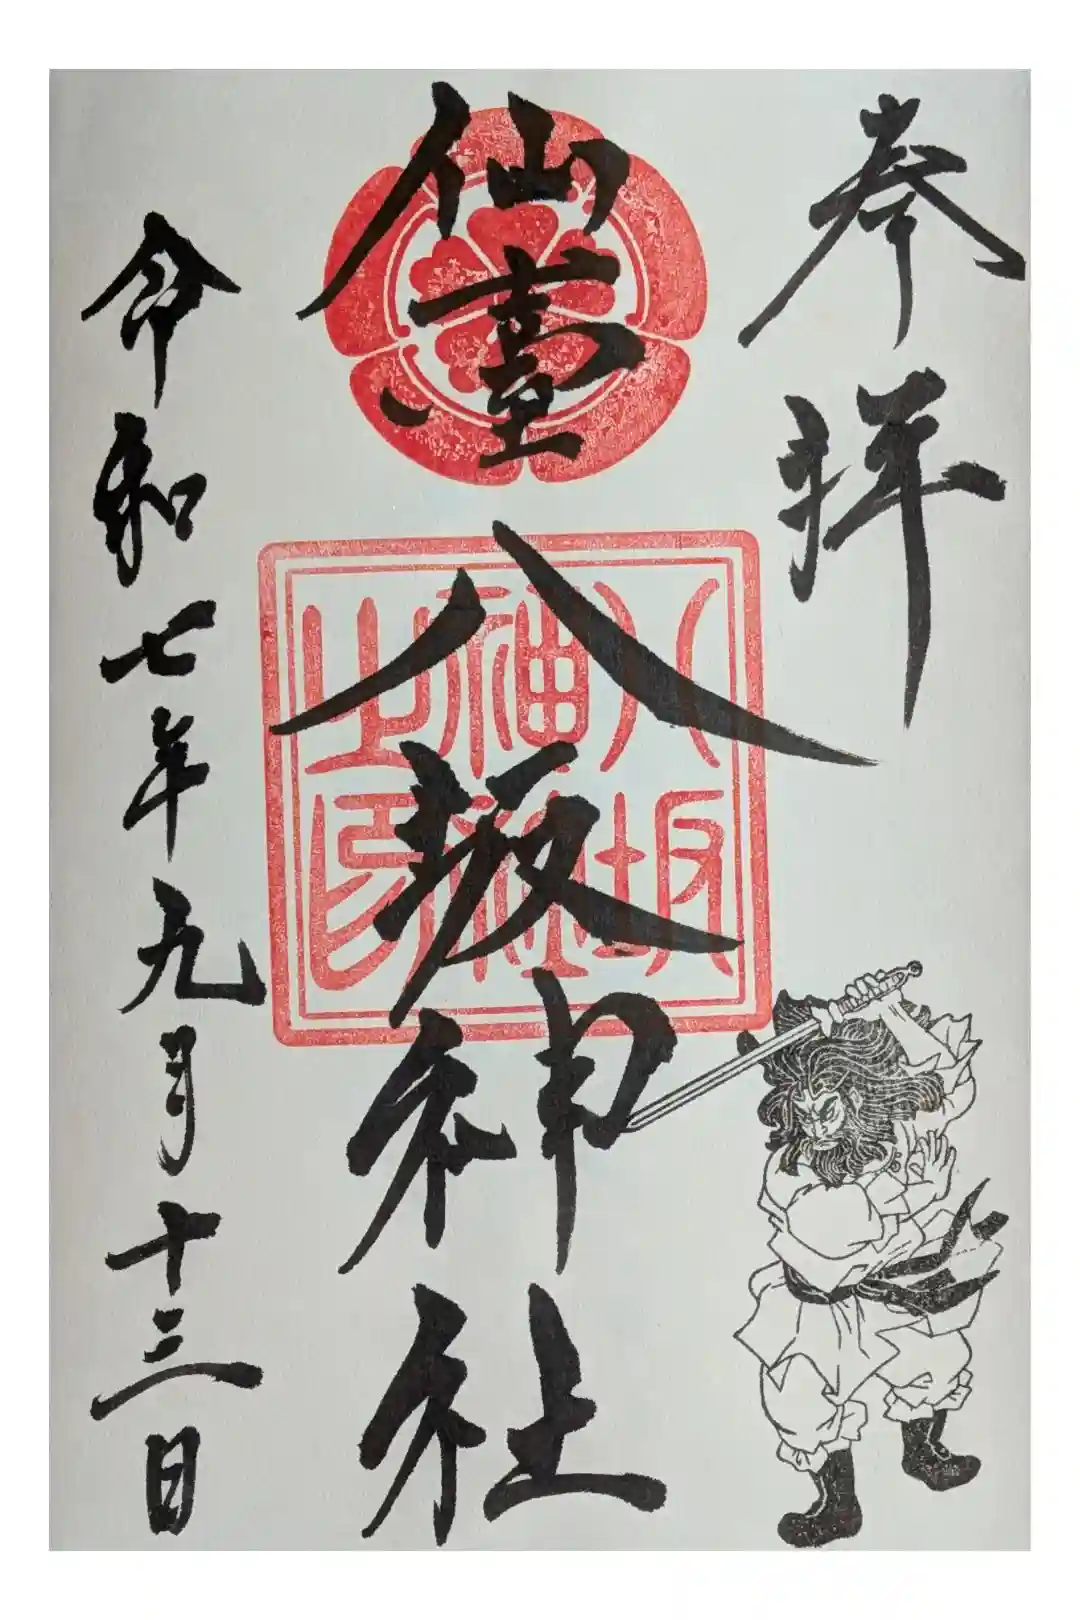 奉拝
仙臺
八坂神社
八坂
神社
之印
令和七年九月十三日